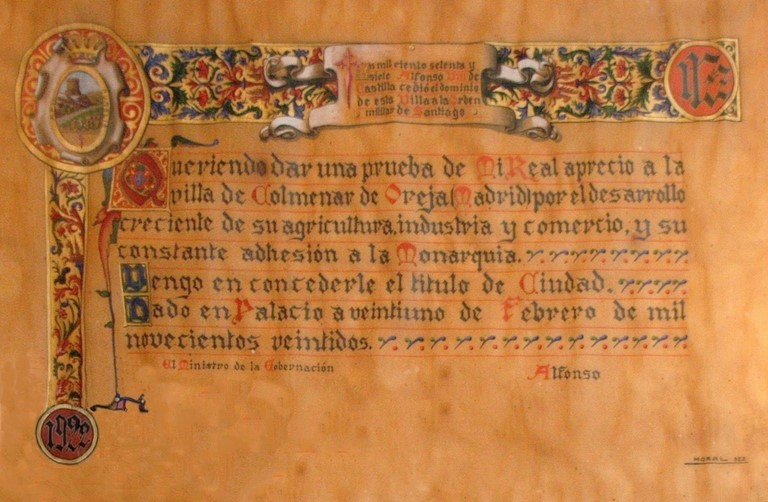 En mil ciento setenta y
siete Alfonso VIII de
Castilla cedió el dominio
de esta Villa a la Orden
militar de Santiago
Queriendo dar una prueba de Mi Real aprecio a la
villa de Colmenar de Oreja (Madrid) por el desarrollo
creciente de su agricultura, industria y comercio, y su
constante adhesión a la Monarquia.
Vengo en concederle el titulo de Ciudad.
Dado en Palacio a veintiuno de Febrero de mil
novecientos veintidos.
El Ministro de la Gobernación
Alfonso
1922
MORAL